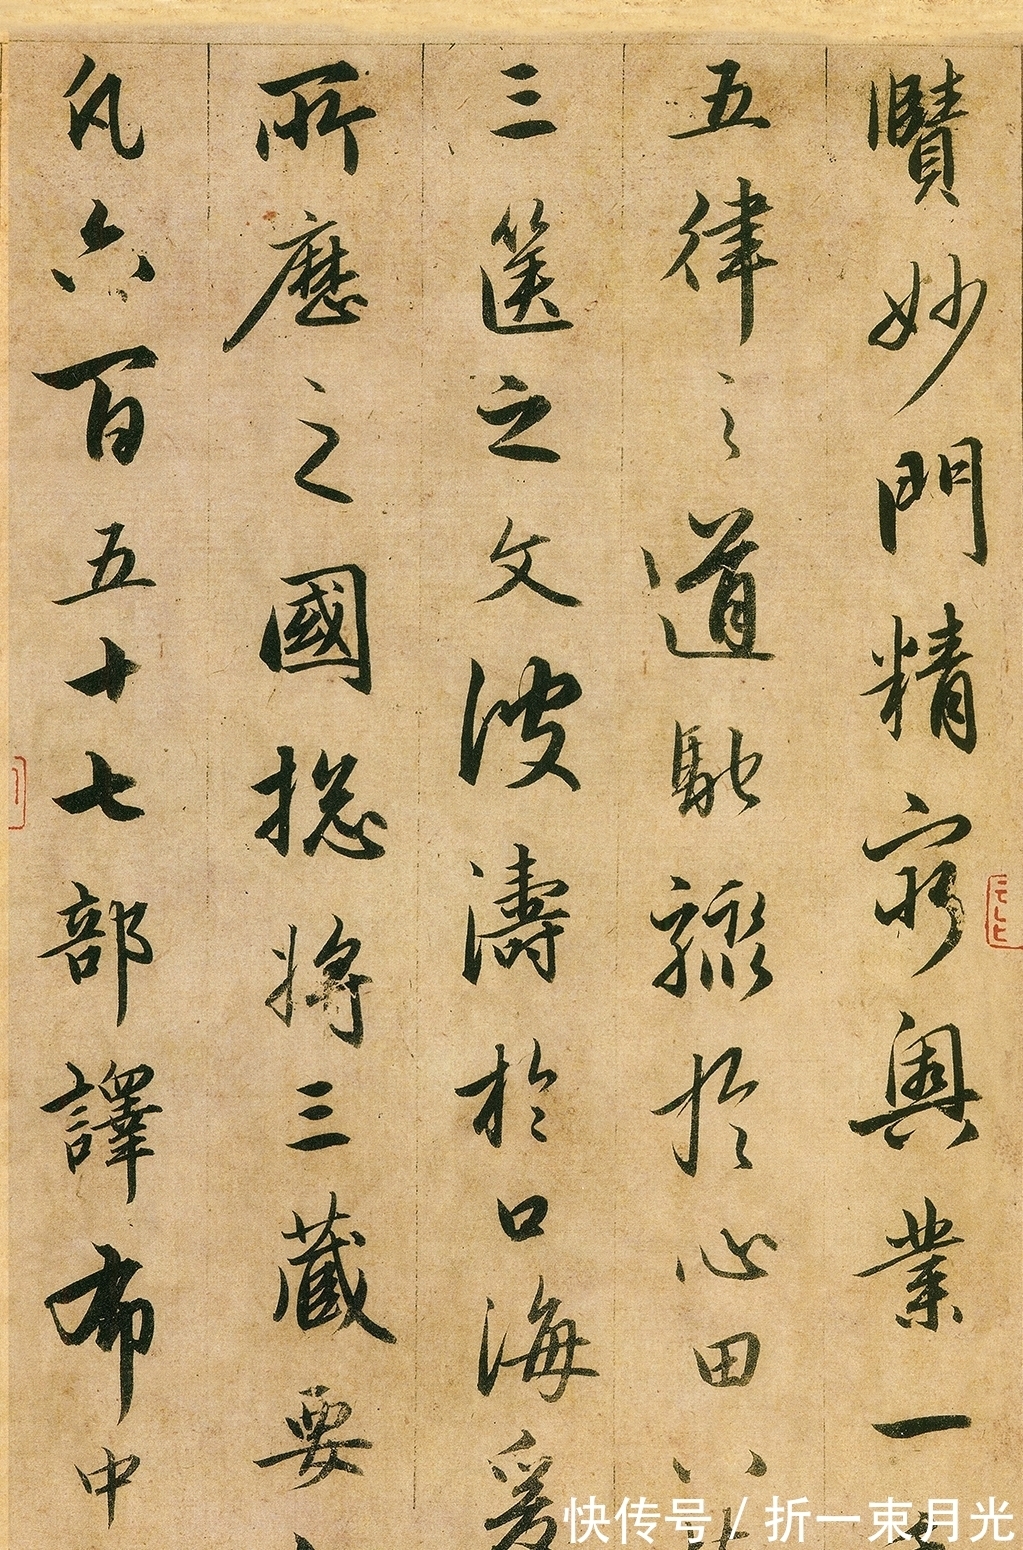 賾妙門精窮奧業一
五律之道馳驟於心田八
三篋之文波濤於口海爰
所歷之國揔將三藏要
凡六百五十七部譯布中
快传号 / 折一束月光